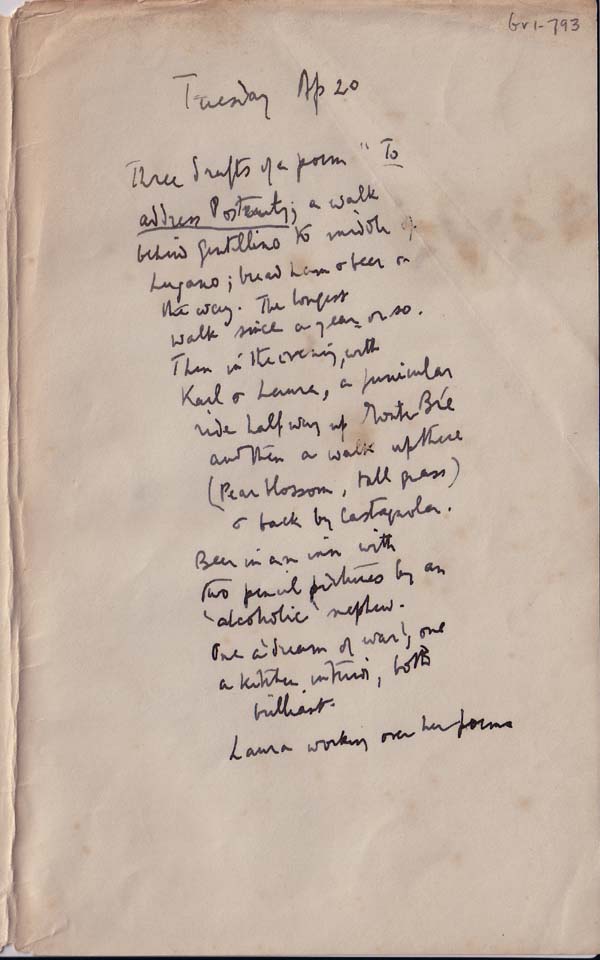 Gv1-793
Tuesday Ap 20
Three drafts of a poem "To
address Posterity; a walk
behind Gentillino to middle of
Lugano; bread ham & beer on
the way. The longest
walk since a year or so.
Then in the evening, with
Karl & Laura, a funicular
ride half way up Monte Brè
and then a walk up there
(Pear blossom, tall grass)
& back by Castagnola.
Beer in an inn with
two pencil pictures by an
'alcoholic' nephew.
One a 'dream of war', one
a kitchen interior, both
brilliant.
Laura working over her poems